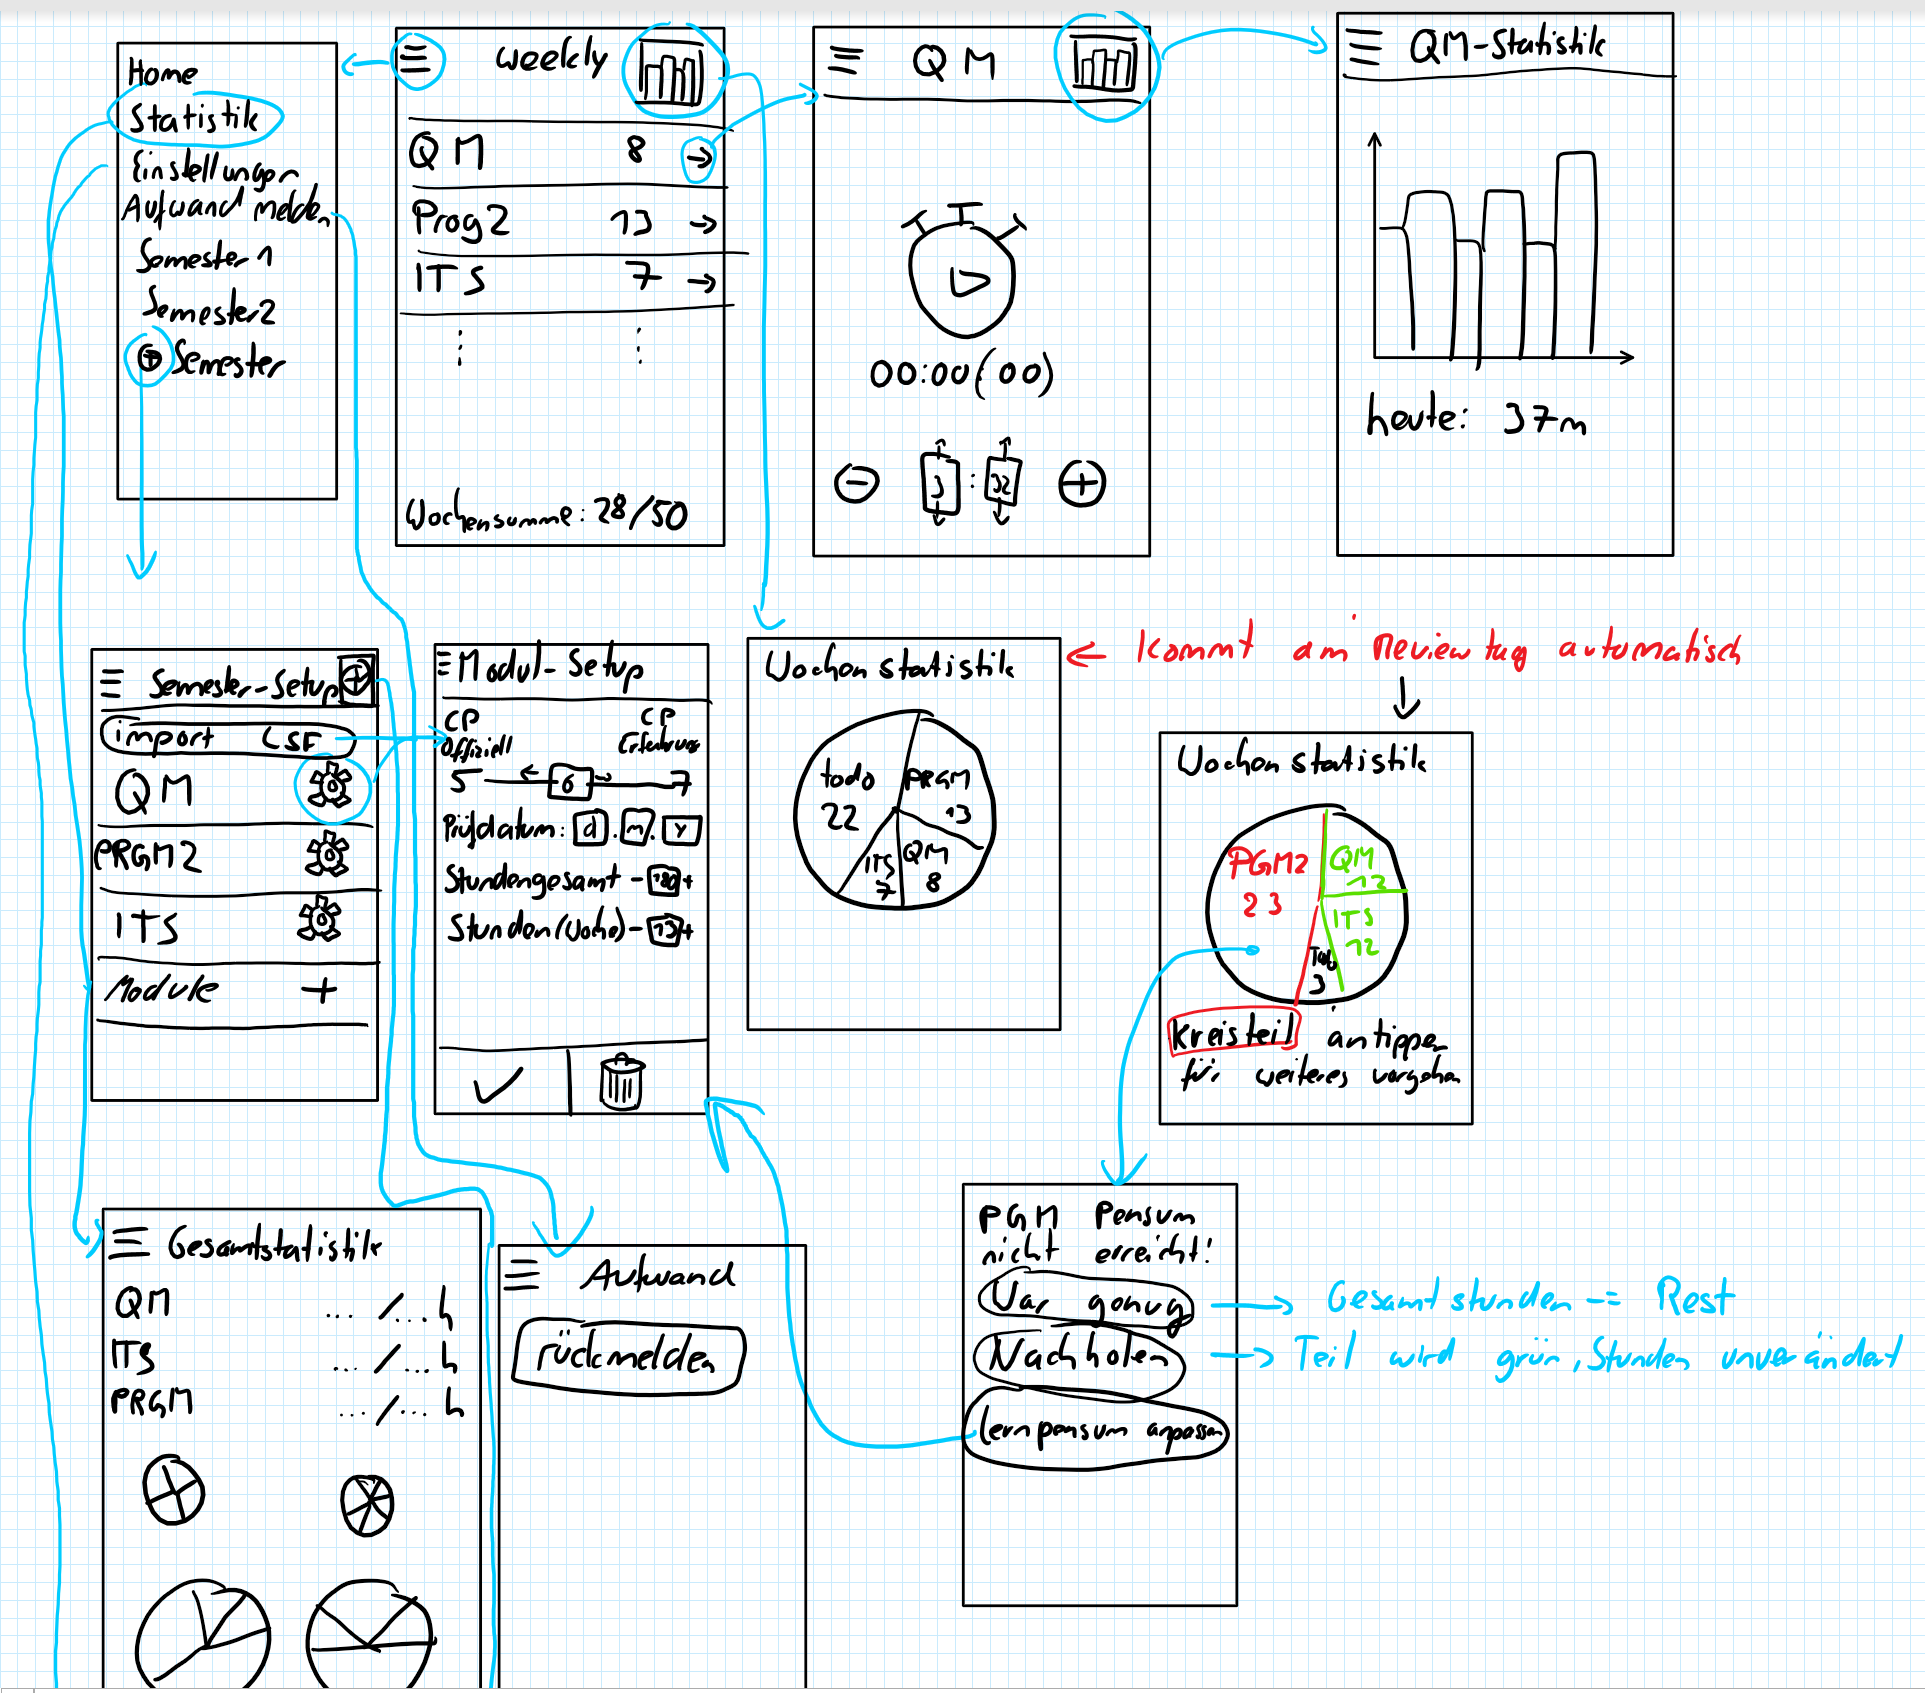 Home
Statistik
Einstellungen
Aufwand melden
Semester 1
Semester 2
+ Semester
weekly
QM 8 →
Prog2 13 →
ITS 7 →
Wochensumme: 28/50
QM
00:00(00)
3 : 32
QM-Statistik
heute: 37m
Semester-Setup
import LSF
QM
PRGM2
ITS
Module +
Modul-Setup
CP CP
Offiziell Erfahrung
5 6 7
Prüfdatum: d . m . y
Stundengesamt - 180 +
Stunden (Woche) - 13 +
Wochenstatistik
todo PRGM
22 13
ITS QM
7 8
← Kommt am Reviewtag automatisch
Wochenstatistik
PGM2 QM
23 12
ITS
12
Todo
3
Kreisteil antippen
für weiteres vorgehen
Gesamtstatistik
QM ... /... h
ITS ... /... h
PRGM ... /... h
Aufwand
rückmelden
PGM Pensum
nicht erreicht!
War genug → Gesamtstunden -= Rest
Nachholen → Teil wird grün, Stunden unverändert
Lernpensum anpassen